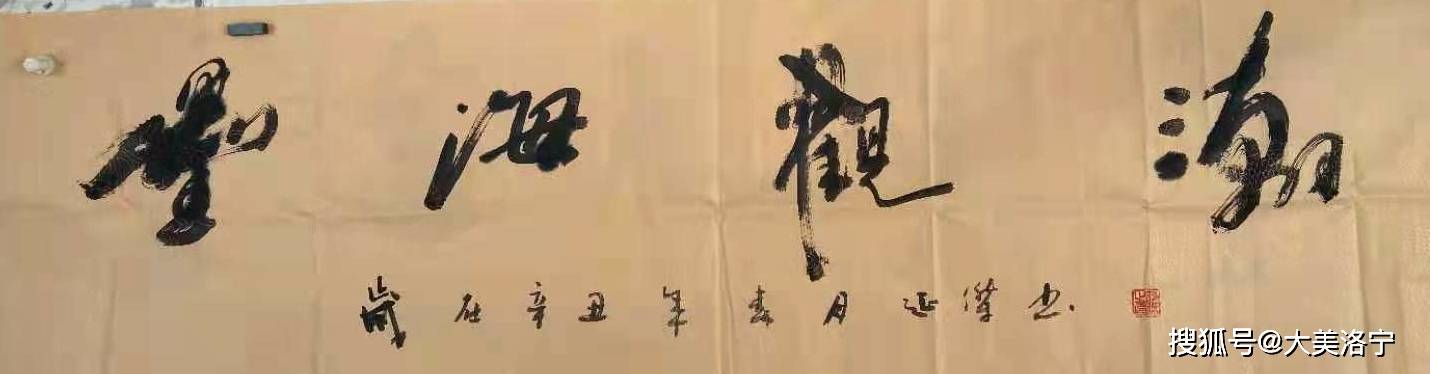 望海觀潮
歲在辛丑年春月延傑书
搜狐号@大美洛宁